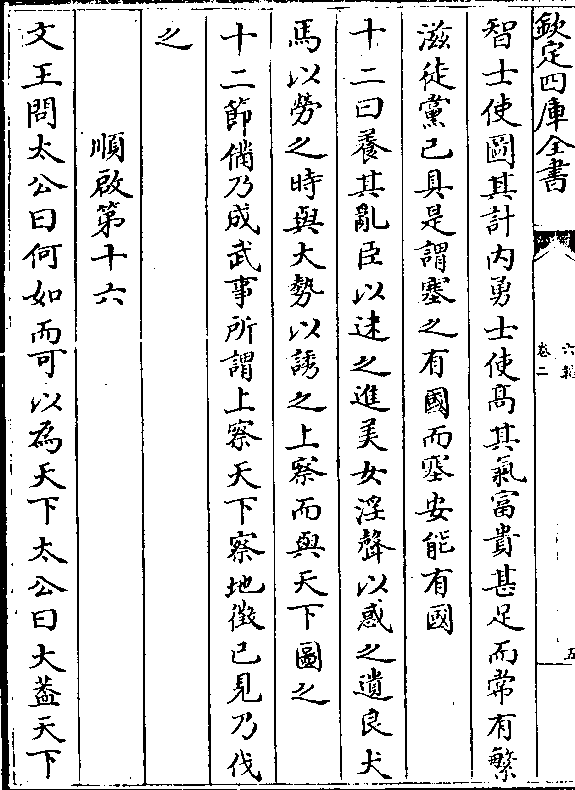 欽定四庫全書
六韜
卷二
五
智士使圖其計内勇士使髙其氣富貴甚足而常有繁
滋徒黨已具是謂塞之有國而塞安能有國
十二曰養其亂臣以迷之進美女淫聲以惑之遺良犬
馬以勞之時與大勢以誘之上察而與天下圖之
十二節備乃成武事所謂上察天下察地徵已見乃伐
之
順啟第十六
文王問太公曰何如而可以為天下太公曰大葢天下